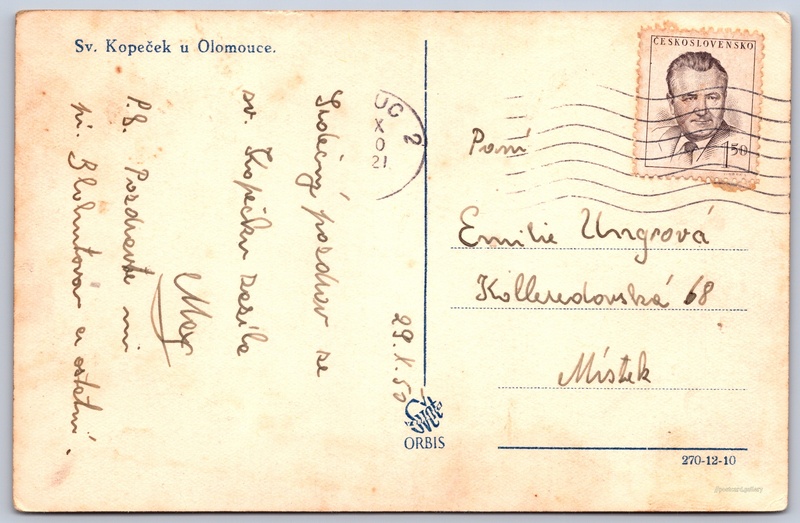 Sv. Kopeček u Olomouce.
29. X. 50
Srdečný pozdrav se
sv. Kopečku zasílá
Max
P.S. Pozdravte mi
pí. a ostatní.
UC 2
X
0
21
ČESKOSLOVENSKO
1 50
Paní
Emilie Ungrová
Kolleredovská 68
Místek
Svět
ORBIS
270-12-10